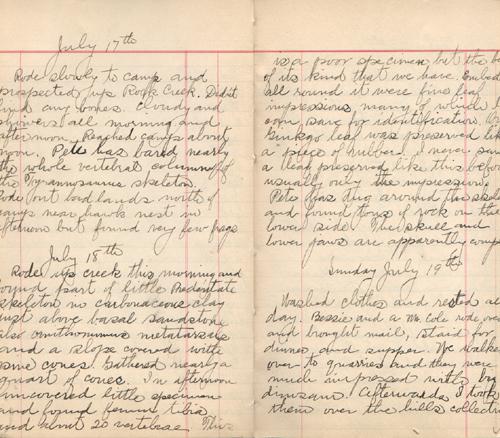 July 17th
Rode slowly to camp and
prospected up Rock Creek. Didn't
find any bones. Cloudy and
showers all morning and
afternoon. Reached camp about
noon. Pete has bared nearly
the whole vertebral column of
the Tyrannosaurus skeleton.
Rode out bad lands north of
camp near hawks nest in
afternoon but found very few frags
July 18th
Rode up creek this morning and
found part of little Predentate
skeleton in carbonaceous clay
just above basal sandstone
also ornithomimus metatarsus
and a slope covered with
pine cones. Gathered nearly a
quart of cones. In afternoon
uncovered little specimen
and found femur, tibia
and about 20 vertebrae. This
is a poor specimen but the be
of its kind that we have.
all round it were fine leaf
impressions, many of which
save for identification.
Ginkgo leaf was preserved like
a piece of rubber. I never saw
a leaf preserved like this before
usually only the impression.
Pete has dug around the skele
and found tons of rock on the
lower side. The skull and
lower jaws are apparently comp
Sunday July 19th
Washed clothes and rested al
day. Bessie and a Mr. Cole rode over
and brought mail, staid for
dinner and supper. We walked
over to quarries and they were
much impressed with big
dinosaur. Afterwards I took
them over the hills collect